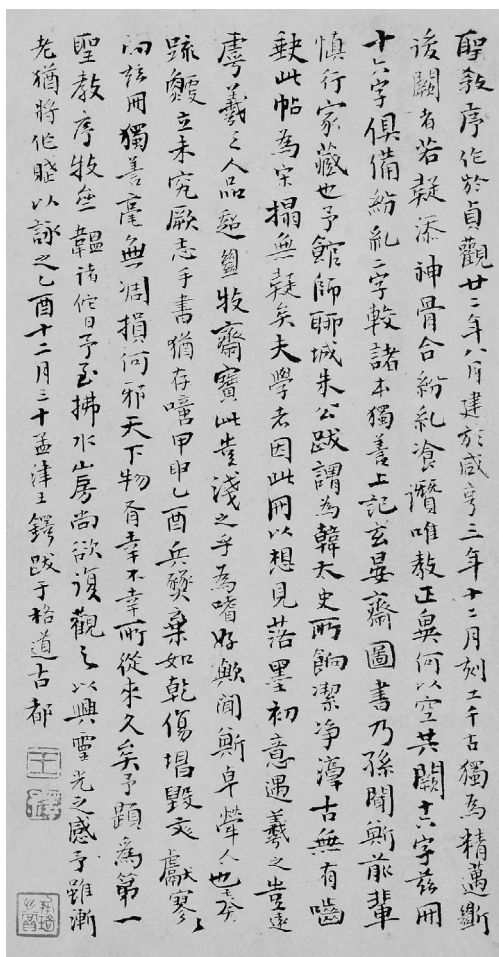 聖教序作於貞觀廿二年八月建於咸亨三年十二月刻工千古獨為精邁斷
後闕者若疑添神骨合紛糺飡謬唯教正奧何以空其闕十六字茲冊
十六字俱備紛糺二字較諸本獨善上記玄晏齋圖書乃孫聞斯前輩
慎行家藏也予館師聊城朱公跋謂為韓太史所餉潔净淳古無有嚙
缺此帖為宋搨無疑矣夫學者因此冊以想見落墨初意遇羲之豈遠
虖羲之人品超
牧齋寶此豈淺之乎為嗜好歟聞斯卓犖人也
疏
立未究厥志手書猶存噫甲申乙酉兵燹棄如乾傷搨毀文獻寥寥
茲冊獨善毫無凋損何邪天下物有幸不幸所從來久矣予題為第一
聖教序牧
韞諸佗日予至拂水山房尚欲復觀之以興靈光之感予雖漸
老猶將作賦以詠之乙酉十二月三十孟津王鐸跋于格道古都
王鐸